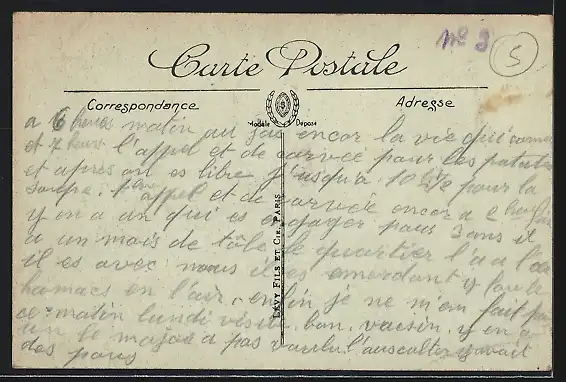 No 3
5
Carte Postale
Correspondance
Adresse
Modèle Déposé
LÉVY FILS ET CIE PARIS
a 6 heures matin au jus encor la vie qui
et 7 heurs l'appel et de corvée pour les patates
et après on es libre j'usqu'a 10 1/2 pour la
soupe. 1 appel et de corvée encor a 2
y en a un qui es engager pour 3 ans il
a un mois de tôle le quartier l'a
il es avec nous il es emerdant y fou le
hamacs en l'air. enfin je ne m'en fait pas
ce matin lundi visite bon vacsin y en a
un le major a pas voulu l'ausculter y avait
des pous